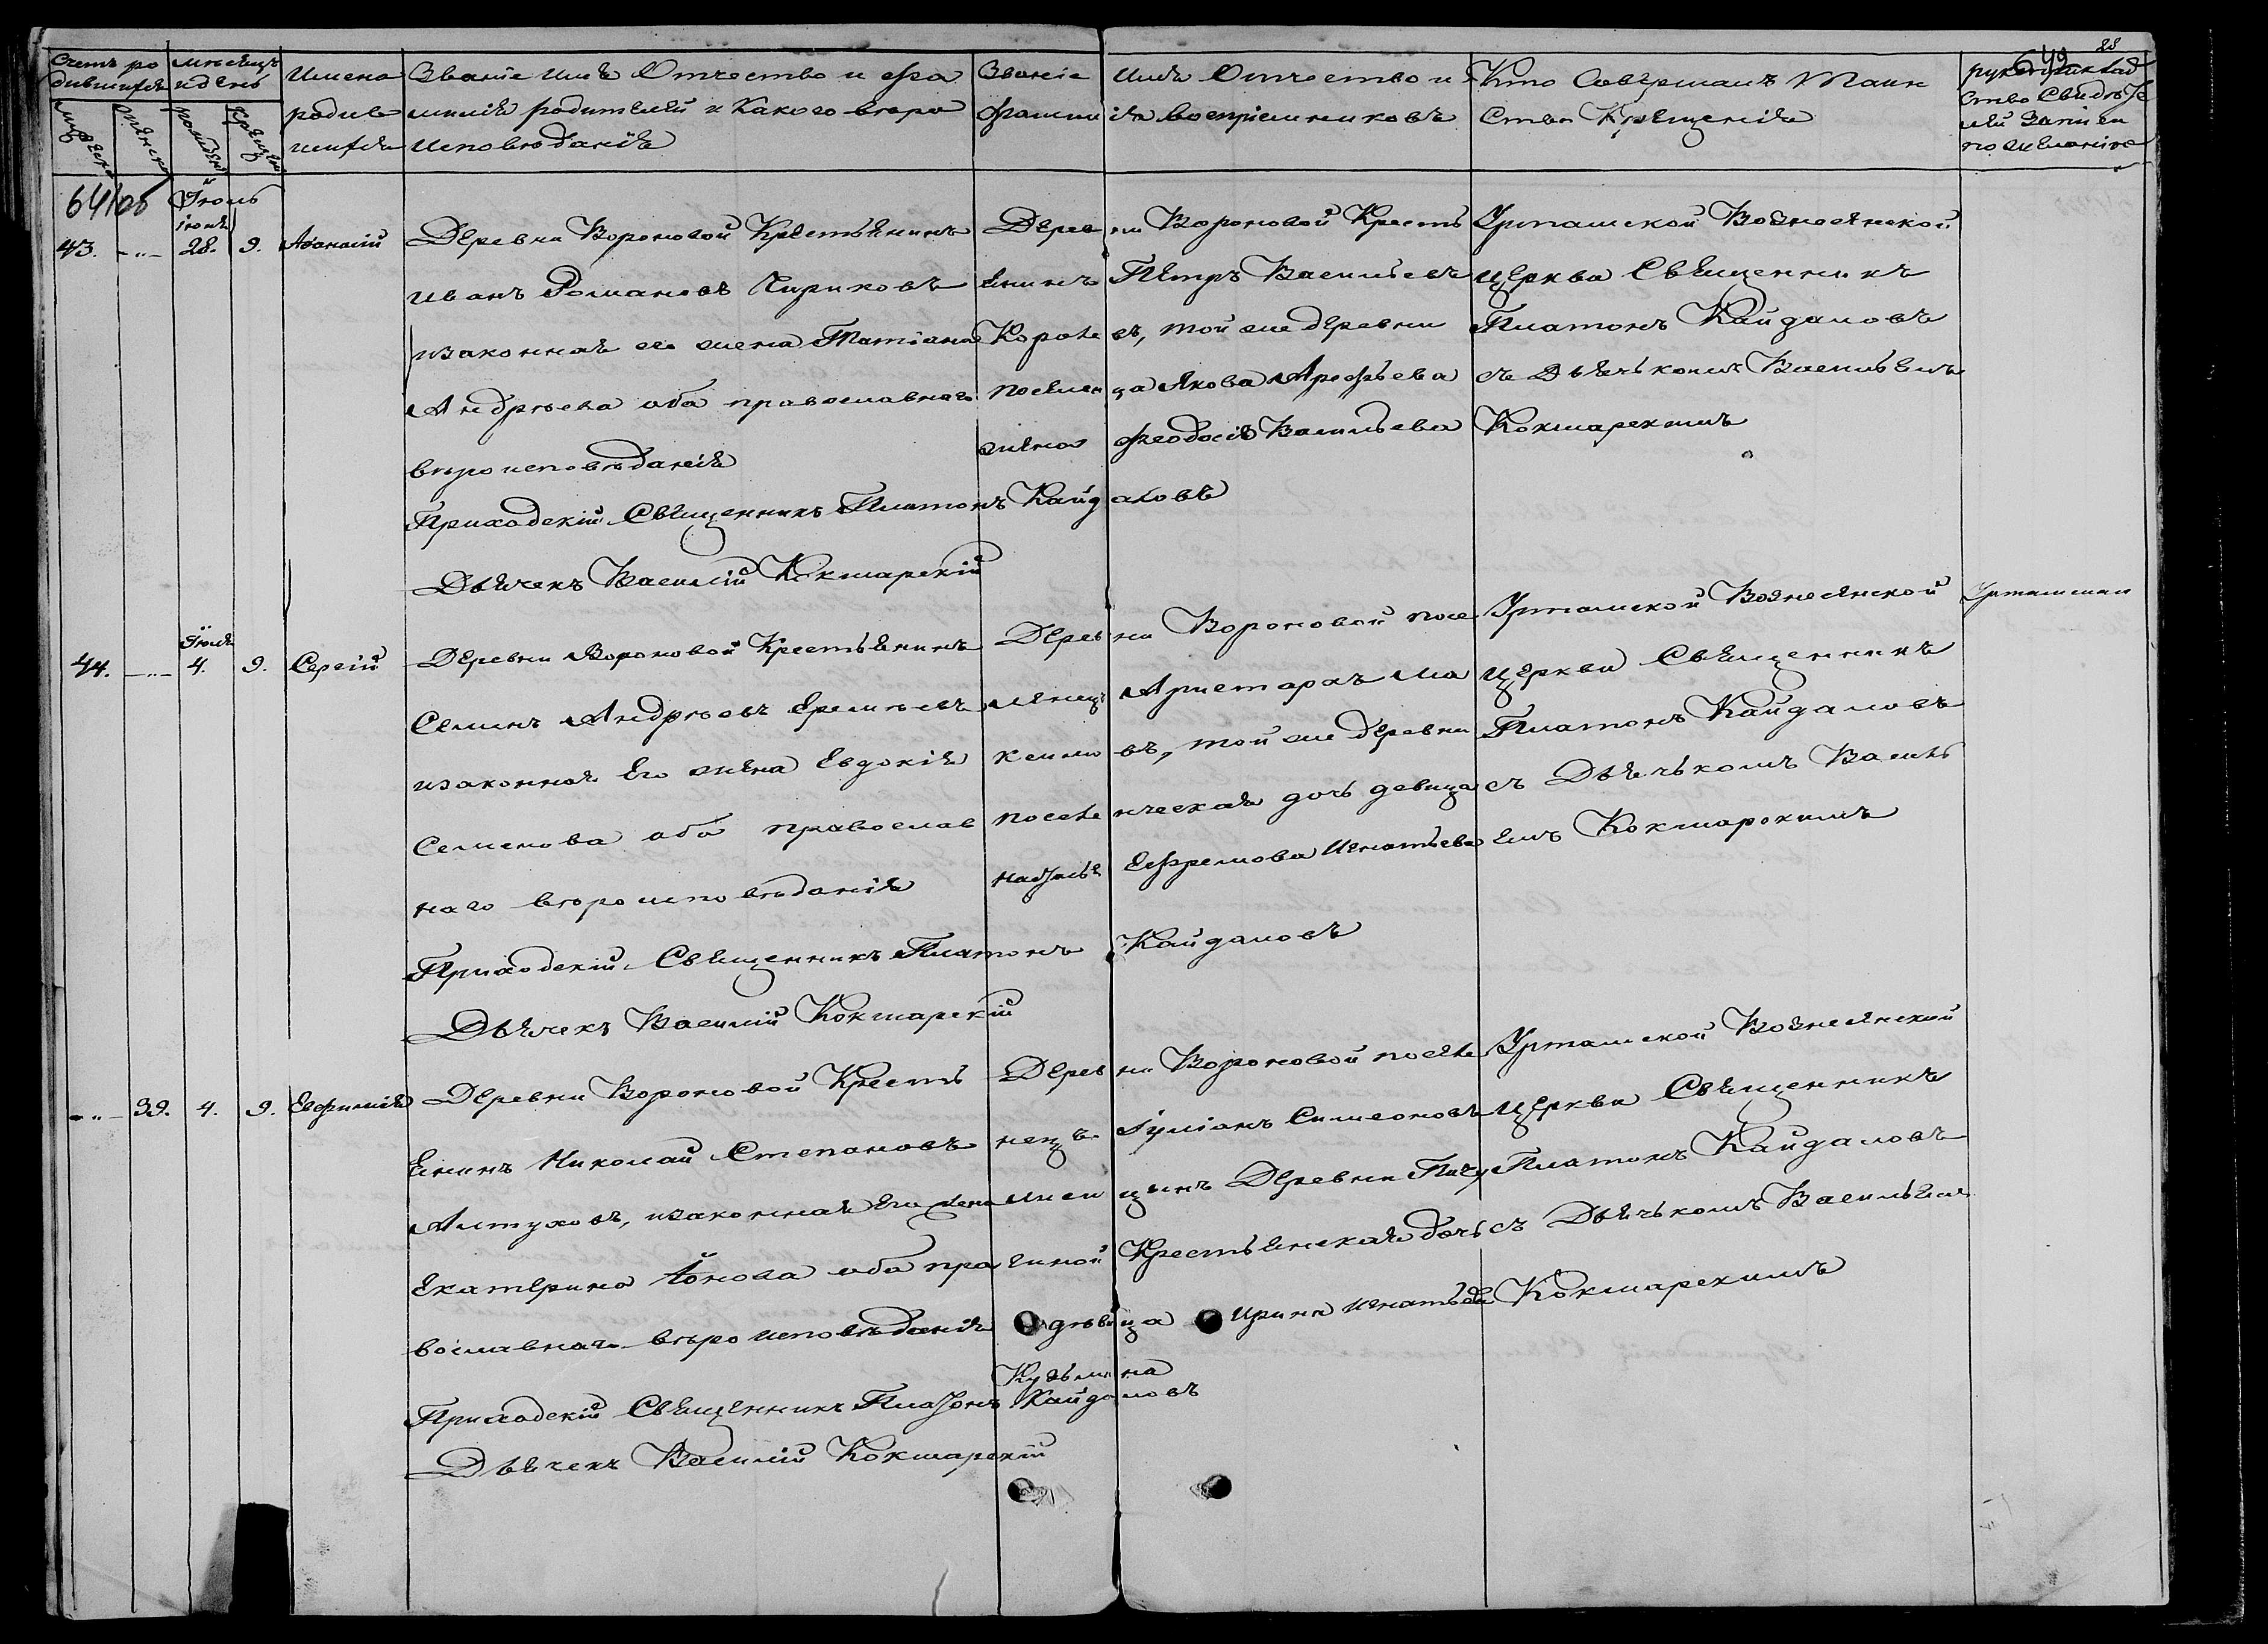 Счетъ ро
дившихся
мѣсяцъ
и день
Имена
родив
шихся
Званіе имя Отчество и фа
милія родителей и какого вѣро
исповѣданія
Званіе имя Отчество и
фамилія воспріемниковъ
Кто Совершалъ Таин
Ство Крещенія
рукоприклад
ство Свидѣте
лей записи
по желанію
649
28
641об
Іюль
43. -"- іюня 28. 9. Аѳанасій
Деревни Вороновой Крестьянинъ
Иванъ Романовъ Чириковъ
изаконная его жена Татіана
Андрѣева оба православнаго
вѣроисповѣданія
Деревни Вороновой Кресть
янинъ Петръ Васильевъ
Королевъ, той же деревни
поселенца Якова Арефьева
жена Феодосія Васильева
Урташской Вознесенской
церкви Священникъ
Платонъ Кайдаловъ
съ Дьячькомъ Васильемъ
Кокшарскимъ
Приходскій Священникъ Платонъ Кайдаловъ
Дьячекъ Василій Кокшарскій
44. -"- Іюля 4. 9. Сергій
Деревни Вороновой Крестьянинъ
Семенъ Андрѣевъ
изаконная Его жена Евдокія
Семенова оба православ
наго вѣроисповѣданія
Деревни Вороновой посе
ленецъ Аристархъ Ма
въ, той же деревни
поселенческая дочь девица
Ефремова Игнатьева
Урташской Вознесенской
церкви Священникъ
Платонъ Кайдаловъ
съ Дьячькомъ Василь
емъ Кокшарскимъ
Приходскій Священникъ Платонъ Кайдаловъ
Дьячекъ Василій Кокшарскій
-"- 39. 4. 9. Евфимія
Деревни Вороновой Кресть
янинъ Николай Степановъ
Алтуховъ, изаконная Его жена
Екатерина Іонова оба пра
вославнаго вѣроисповѣданія
Деревни Вороновой поселе
нецъ Іуліанъ Симеоновъ
Деревни
Крестьянская дочь
дѣвица Ирина Игнатьева
Кузьмина
Урташской Вознесенской
церкви Священникъ
Платонъ Кайдаловъ
съ Дьячькомъ Васильемъ
Кокшарскимъ
Приходскій Священникъ Платонъ Кайдаловъ
Дьячекъ Василій Кокшарскій